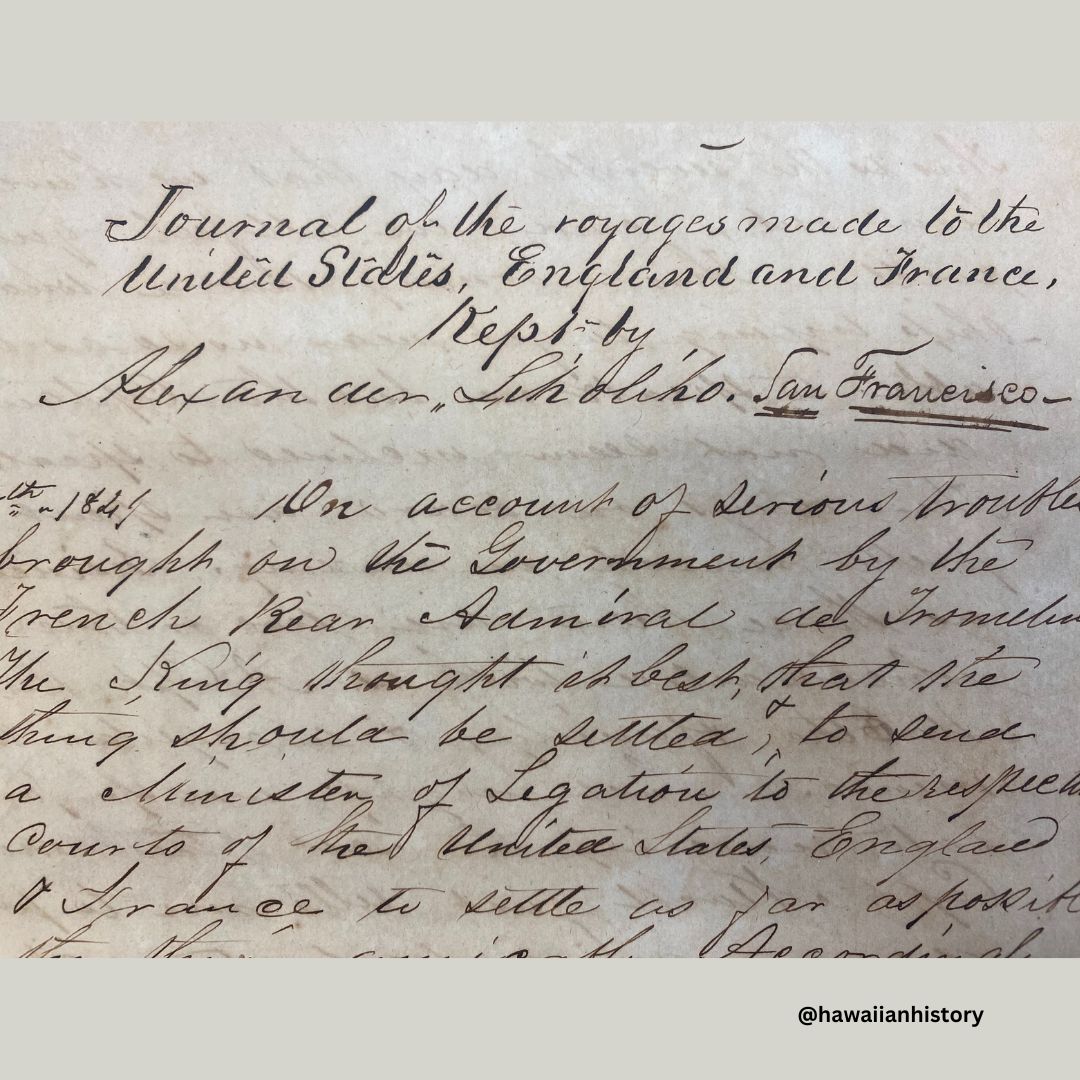 Journal of the voyages made to the
United States, England and France,
Kept by
Alexander Liholiho. San Francisco
th 184
On account of serious trouble
brought on the Government by the
French Rear Admiral de Tromelin
The King thought it best, that the
thing should be settled, & to send
a Minister of Legation to the respec
courts of the United States, England
& France to settle as far as possib
Accordingl
@hawaiianhistory